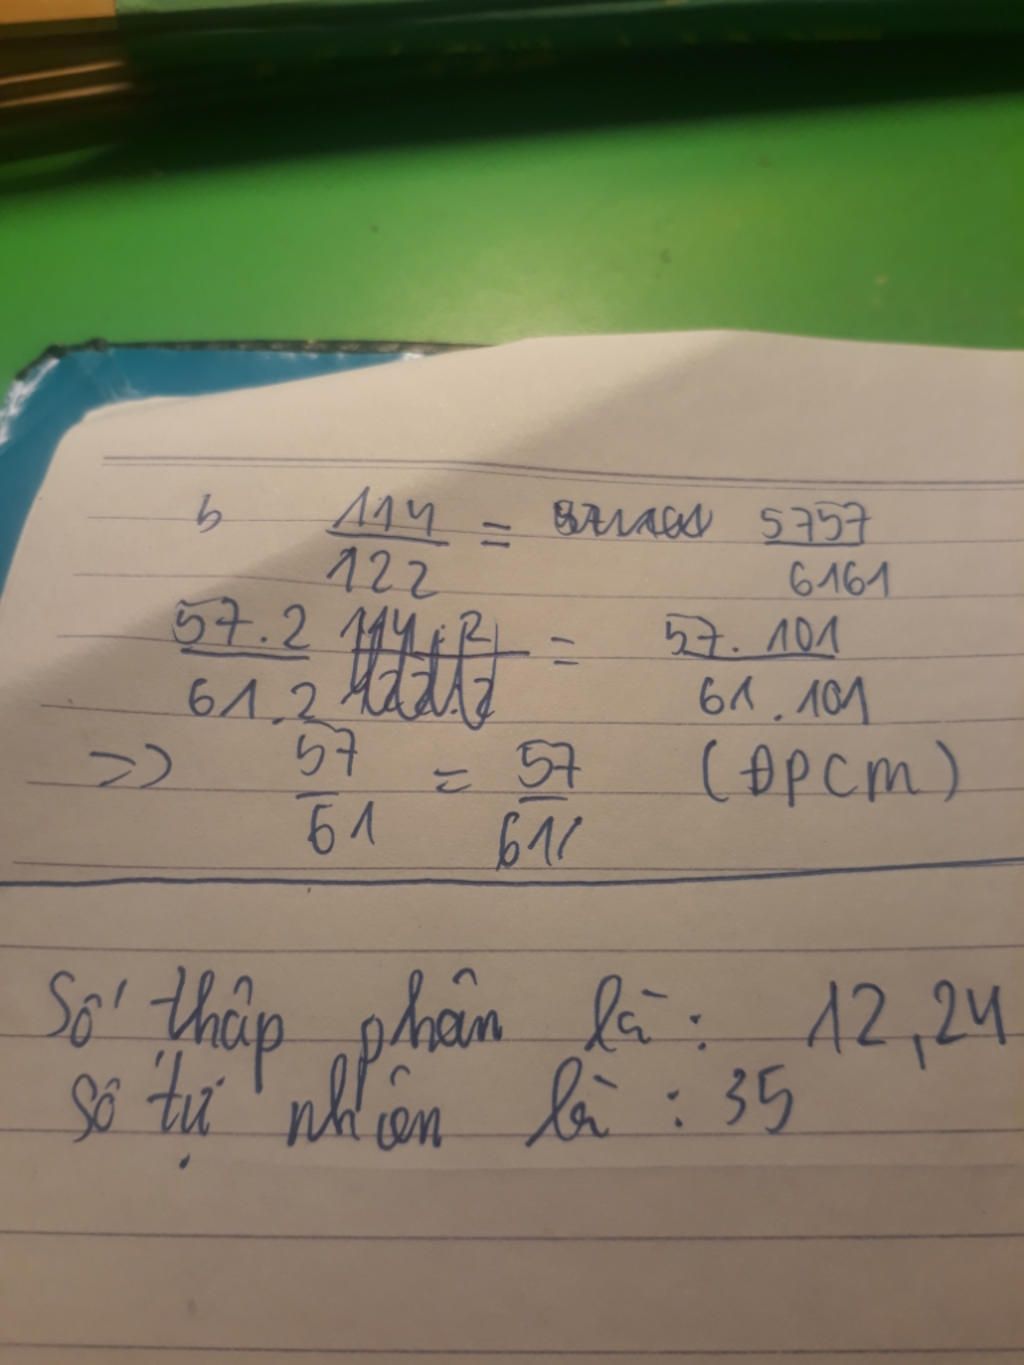 b 114/122 = 5757/6161
57.2/61.2 = 57.101/61.101
=> 57/61 = 57/61 (ĐPCM)
Số thập phân là : 12,24
Số tự nhiên là : 35